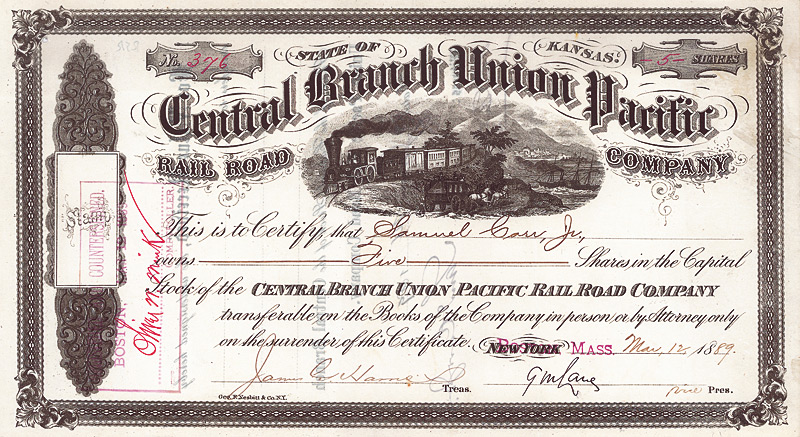 No. 376
STATE OF KANSAS.
-5- SHARES
Central Branch Union Pacific
RAIL ROAD COMPANY
Stamp
COUNTERSIGNED.
BOSTON
This is to Certify, that Samuel Carr, Jr.,
owns Five Shares in the Capital
Stock of the CENTRAL BRANCH UNION PACIFIC RAIL ROAD COMPANY
transferable on the Books of the Company in person, or by Attorney only
on the surrender of this Certificate. NEW YORK BOSTON MASS. Mar, 12, 1889.
Treas. G M Lane Pres.
Geo. F. Nesbitt & Co. N.Y.